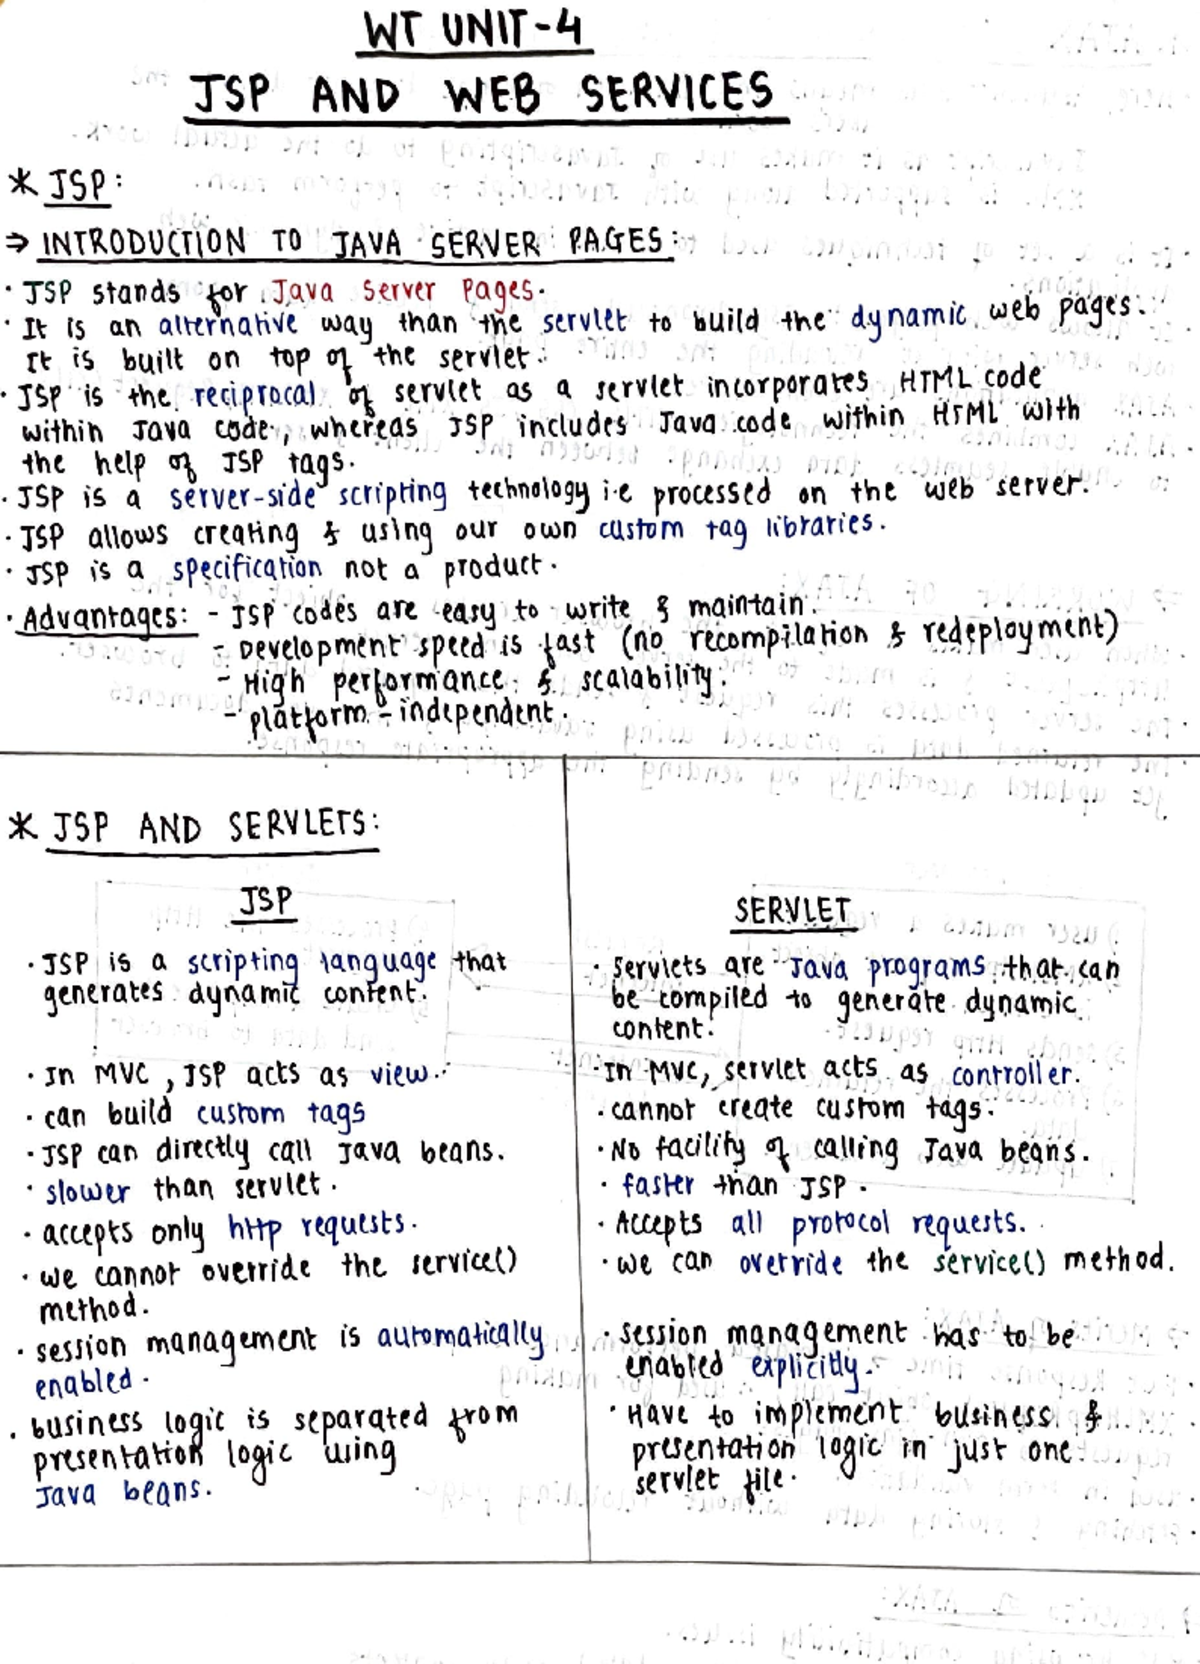 WT UNIT-4
JSP AND WEB SERVICES
* JSP:
⇒ INTRODUCTION TO JAVA SERVER PAGES:
· JSP stands for Java Server Pages.
· It is an alternative way than the servlet to build the dynamic web pages.
It is built on top of the servlet.
· JSP is the reciprocal of servlet as a servlet incorporates HTML code
within Java code, whereas JSP includes Java code within HTML with
the help of JSP tags.
· JSP is a server-side scripting technology i.e processed on the web server.
· JSP allows creating & using our own custom tag libraries.
· JSP is a specification not a product.
· Advantages: - JSP codes are easy to write & maintain.
- Development speed is fast (no recompilation & redeployment)
- High performance & scalability.
- platform-independent.
* JSP AND SERVLETS:
JSP
· JSP is a scripting language that
generates dynamic content.
· In MVC, JSP acts as view.
· can build custom tags
· JSP can directly call Java beans.
· slower than servlet.
· accepts only http requests.
· we cannot override the service()
method.
· session management is automatically
enabled.
. business logic is separated from
presentation logic using
Java beans.
SERVLET
· Servlets are Java programs that can
be compiled to generate dynamic
content.
· In MVC, servlet acts as controller.
· cannot create custom tags.
· No facility of calling Java beans.
· faster than JSP.
· Accepts all protocol requests.
· we can override the service() method.
· session management has to be
enabled explicitly.
· Have to implement business &
presentation logic in just one
servlet file.